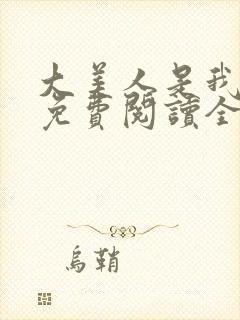 大美人是我
免費閱讀全
烏鞘